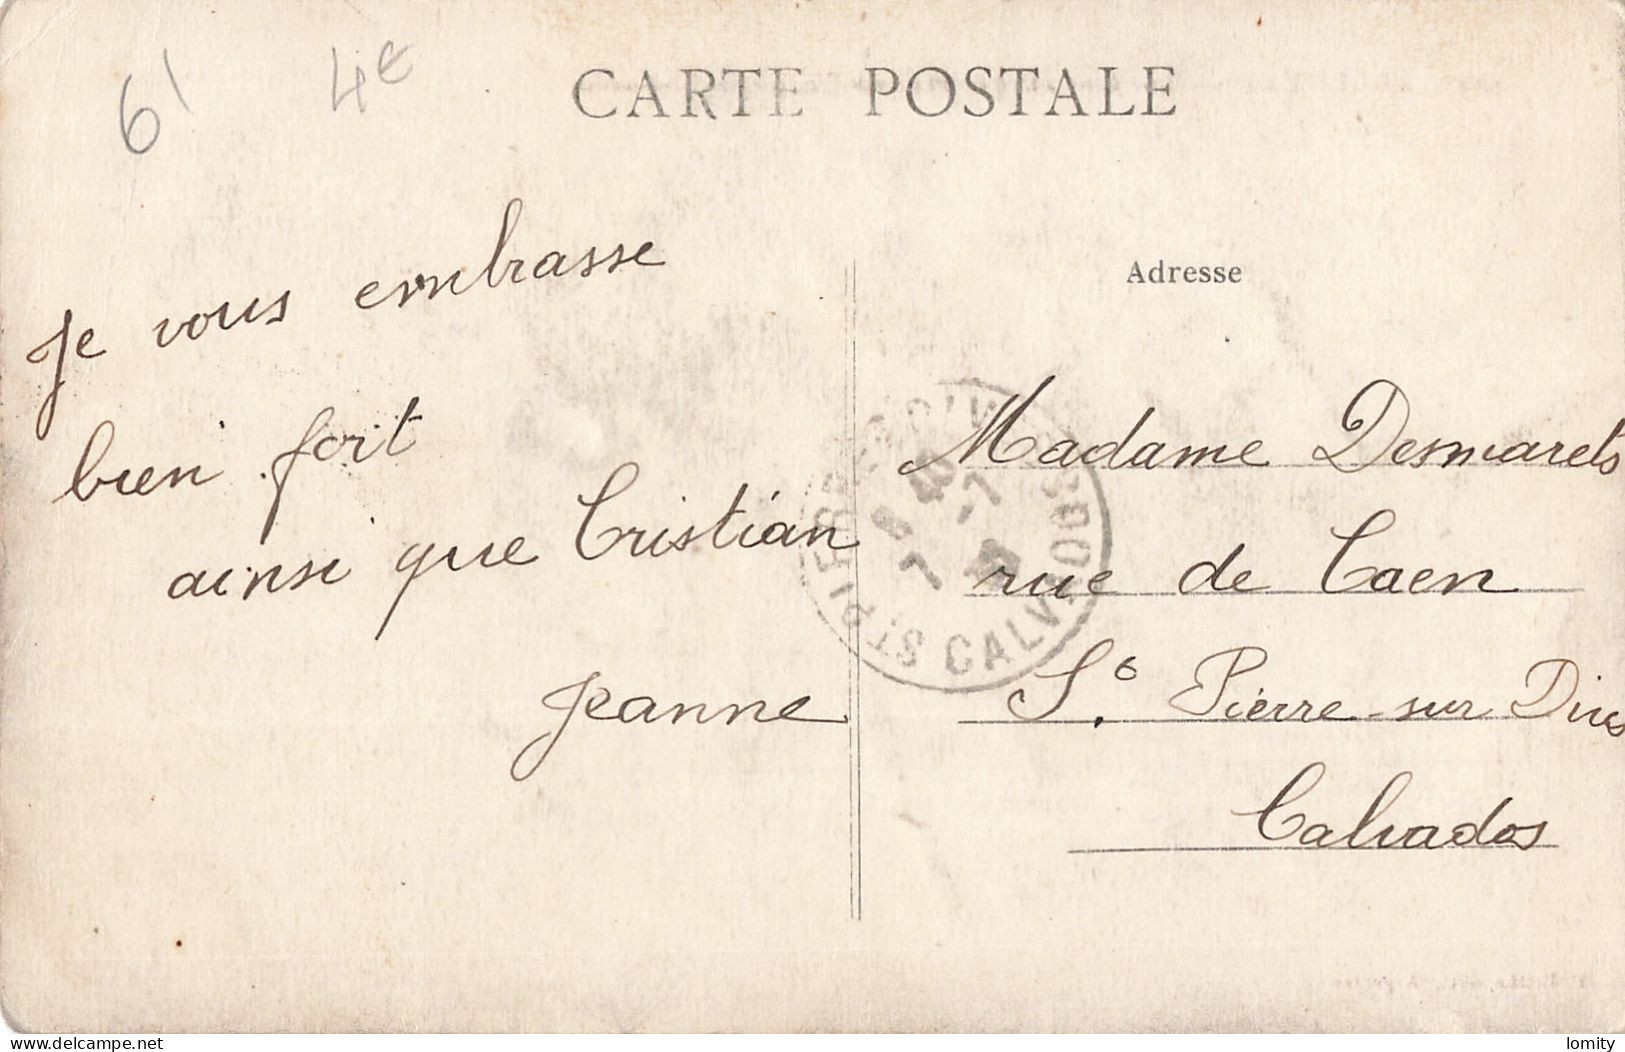 61 4e
CARTE POSTALE
Je vous embrasse
bien fort
ainsi que Cristian
Jeanne
Adresse
Madame Desmarets
rue de Caen
St Pierre-sur Dives
Calvados
ST PIERRE S. DIVES
CALVADOS
8 40
7 -7
delcampe.net
lomity